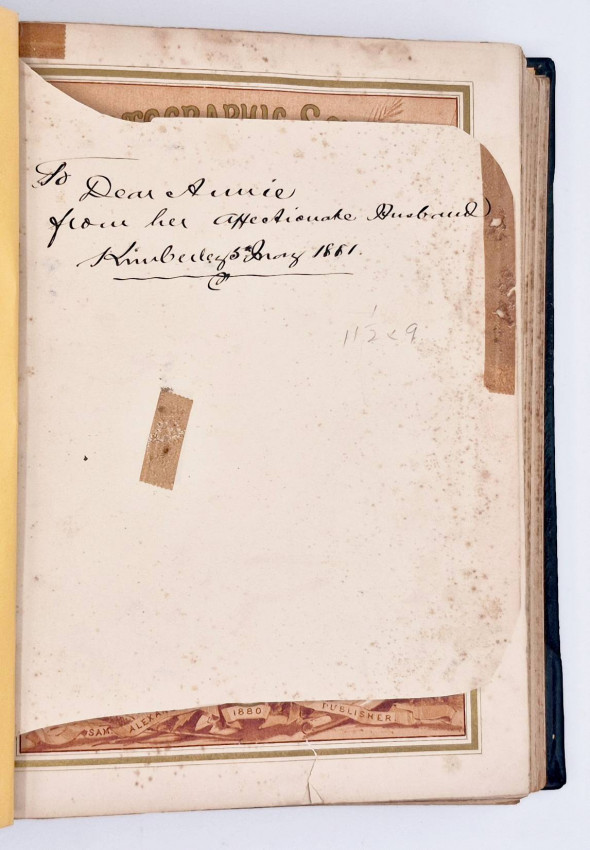 TOGRAPHIC SC
To
Dear Annie
from her affectionate Husband
Kimberley 5th May 1881.
11½ x 9
SAM ALEXA
1880
PUBLISHER